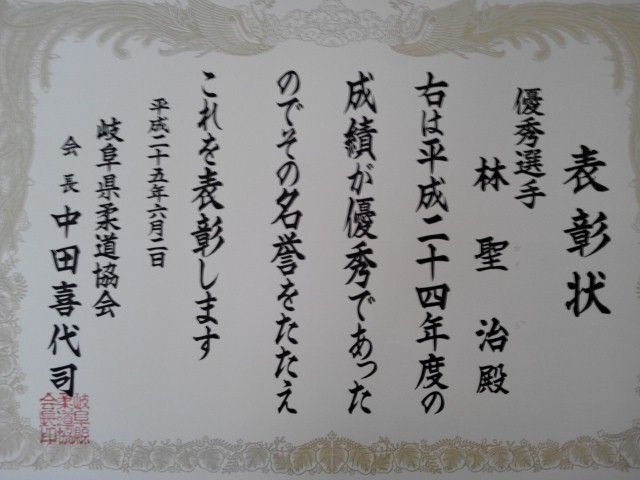 表彰状
優秀選手
林聖治殿
右は平成二十四年度の
成績が優秀であった
のでその名誉をたたえ
これを表彰します
平成二十五年六月二日
岐阜県柔道協会
会長 中田喜代司
岐阜縣
柔道協
会長印